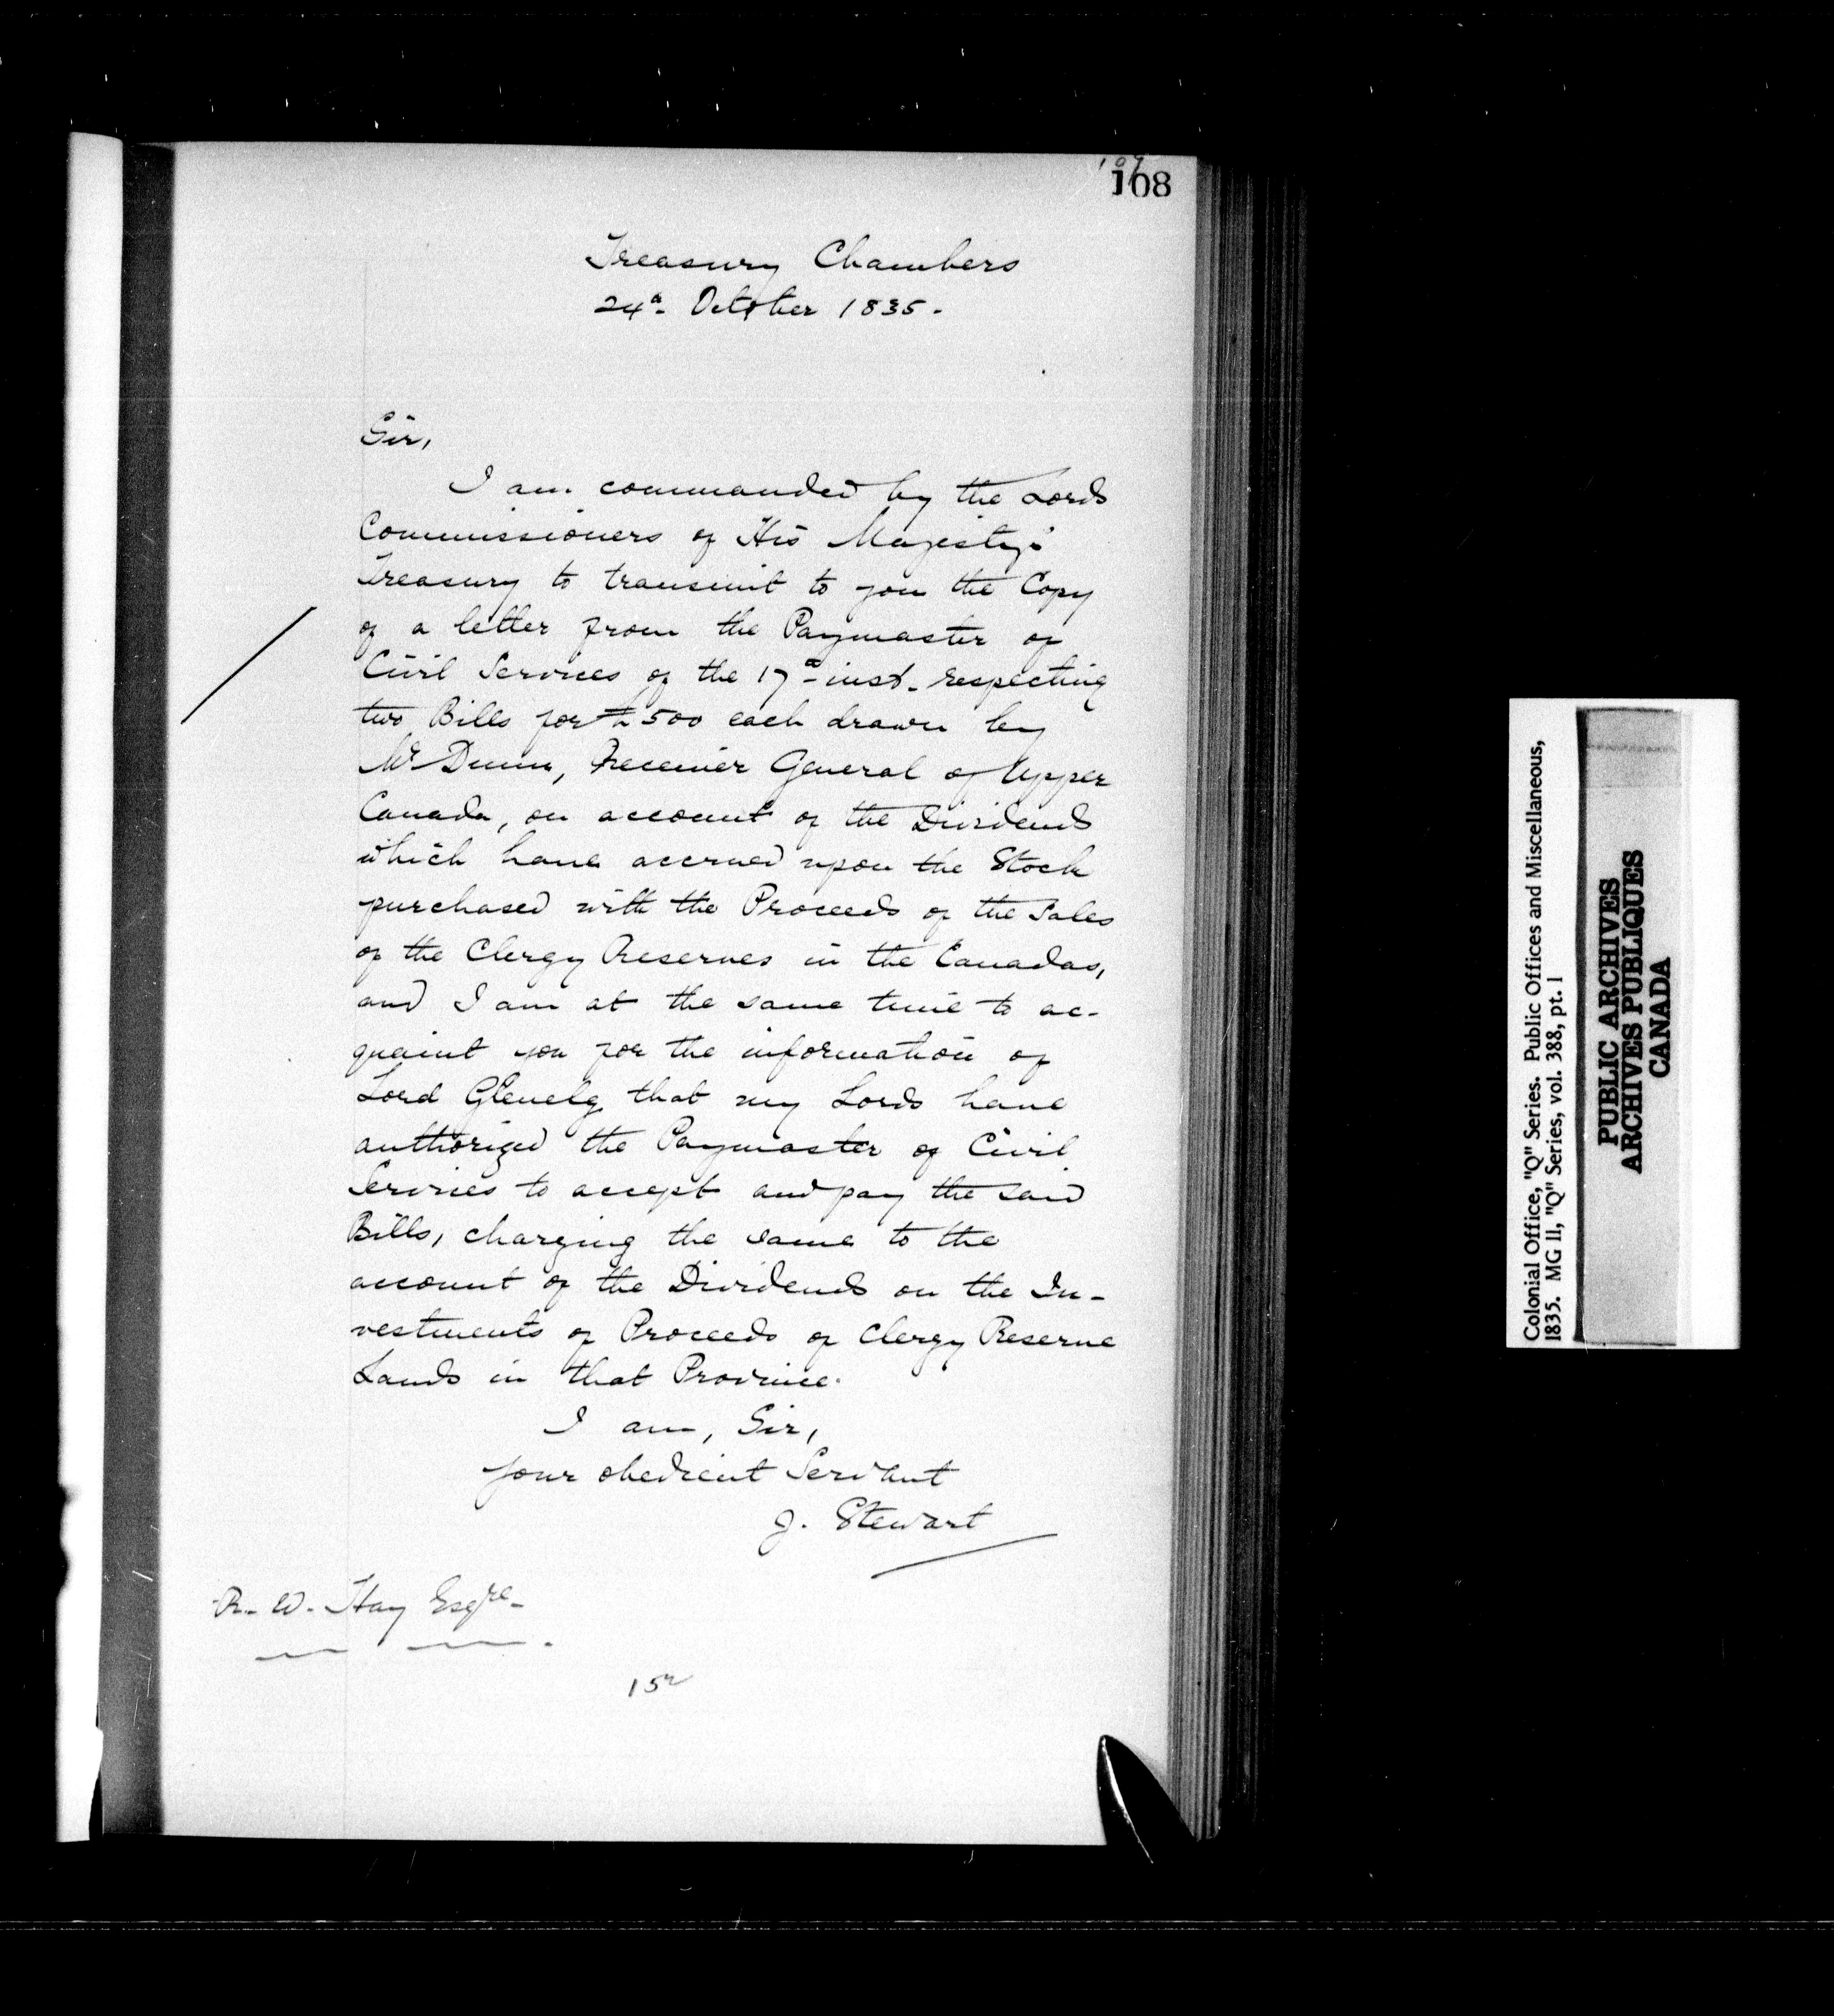 109
108
Treasury Chambers
24th October 1835.
Sir,
I am commanded by the Lords
Commissioners of His Majesty's
Treasury to transmit to you the Copy
of a letter from the Paymaster of
Civil Services of the 17th inst. respecting
two Bills for £500 each drawn by
Mr Dunn, Receiver General of Upper
Canada, on account of the Dividends
which have accrued upon the Stock
purchased with the Proceeds of the Sales
of the Clergy Reserves in the Canadas,
and I am at the same time to ac-
quaint you for the information of
Lord Glenelg that my Lords have
authorized the Paymaster of Civil
Services to accept and pay the said
Bills, charging the same to the
account of the Dividends on the In-
vestments of Proceeds of Clergy Reserve
Lands in that Province.
I am, Sir,
Your obedient Servant
J. Stewart
R. W. Hay Esqre
Colonial Office, "Q" Series. Public Offices and Miscellaneous,
1835. MG 11, "Q" Series, vol. 388, pt. 1
PUBLIC ARCHIVES
ARCHIVES PUBLIQUES
CANADA